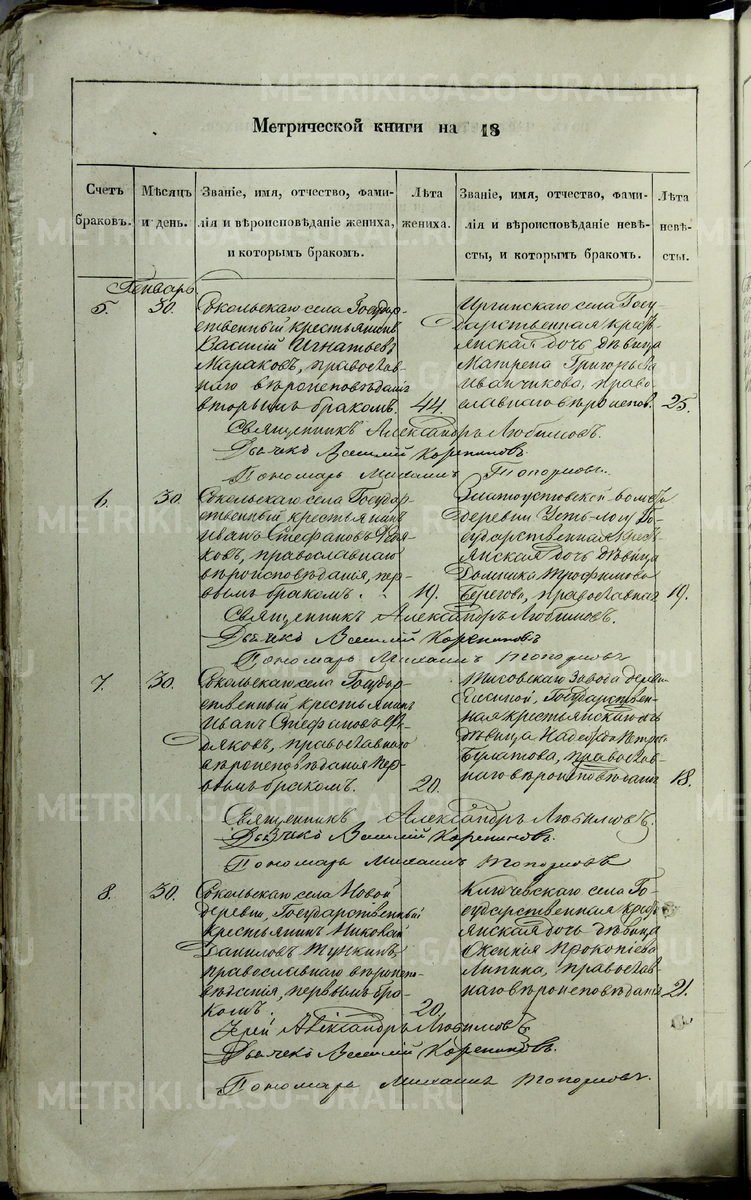 Метрической книги на 18
Счетъ браковъ.
Мѣсяцъ и день.
Званіе, имя, отчество, фами-
лія и вѣроисповѣданіе жениха,
и которымъ бракомъ.
Лѣта жениха.
Званіе, имя, отчество, фами-
лія и вѣроисповѣданіе невѣ-
сты, и которымъ бракомъ.
Лѣта невѣ-
сты.
Январь
5. 30.
Сокольскаго села Государ-
ственный крестьянинъ
Василій Игнатьевъ
Мараковъ, православ-
наго вѣроисповѣданія
вторымъ бракомъ. 44.
Иргинскаго села Госу-
дарственная кресть-
янская дочь дѣвица
Матрена Григорьева
Иванчикова, право-
славнаго вѣроисповѣ. 25.
Священникъ Александръ Любимовъ.
Дьячекъ Василій Корепиновъ.
Пономарь Михаилъ Топорковъ.
6. 30.
Сокольскаго села Государ-
ственный крестьянинъ
Иванъ Стефановъ
православнаго
вѣроисповѣданія, пер-
вымъ бракомъ. 19.
Златоустовской волости
деревни Усть-логу Го-
сударственная кресть-
янская дочь дѣвица
Домника Трофимова
Берегова, православная 19.
Священникъ Александръ Любимовъ.
Дьячекъ Василій Корепиновъ
Пономарь Михаилъ Топорковъ
7. 30.
Сокольскаго села Государ-
ственный крестьянинъ
Иванъ Стефановъ
православнаго
вѣроисповѣданія пер-
вымъ бракомъ. 20.
завода дерев.
Государствен-
ная крестьянская дочь
дѣвица Надежда Петрова
Булатова, православ-
наго вѣроисповѣданія 18.
Священникъ Александръ Любимовъ.
Дьячекъ Василій Корепиновъ.
Пономарь Михаилъ Топорковъ
8. 30.
Сокольскаго села Новой
деревни, Государственный
крестьянинъ Николай
Даниловъ Тункинъ,
православнаго вѣроиспо-
вѣданія, первымъ бра-
комъ. 20.
Ключевскаго села Го-
сударственная кресть-
янская дочь дѣвица
Оксинія Прокопіева
Липина, православ-
наго вѣроисповѣданія 21.
Іерей Александръ Любимовъ.
Дьячекъ Василій Корепиновъ.
Пономарь Михаилъ Топорковъ.
METRIKI.GASO-URAL.RU